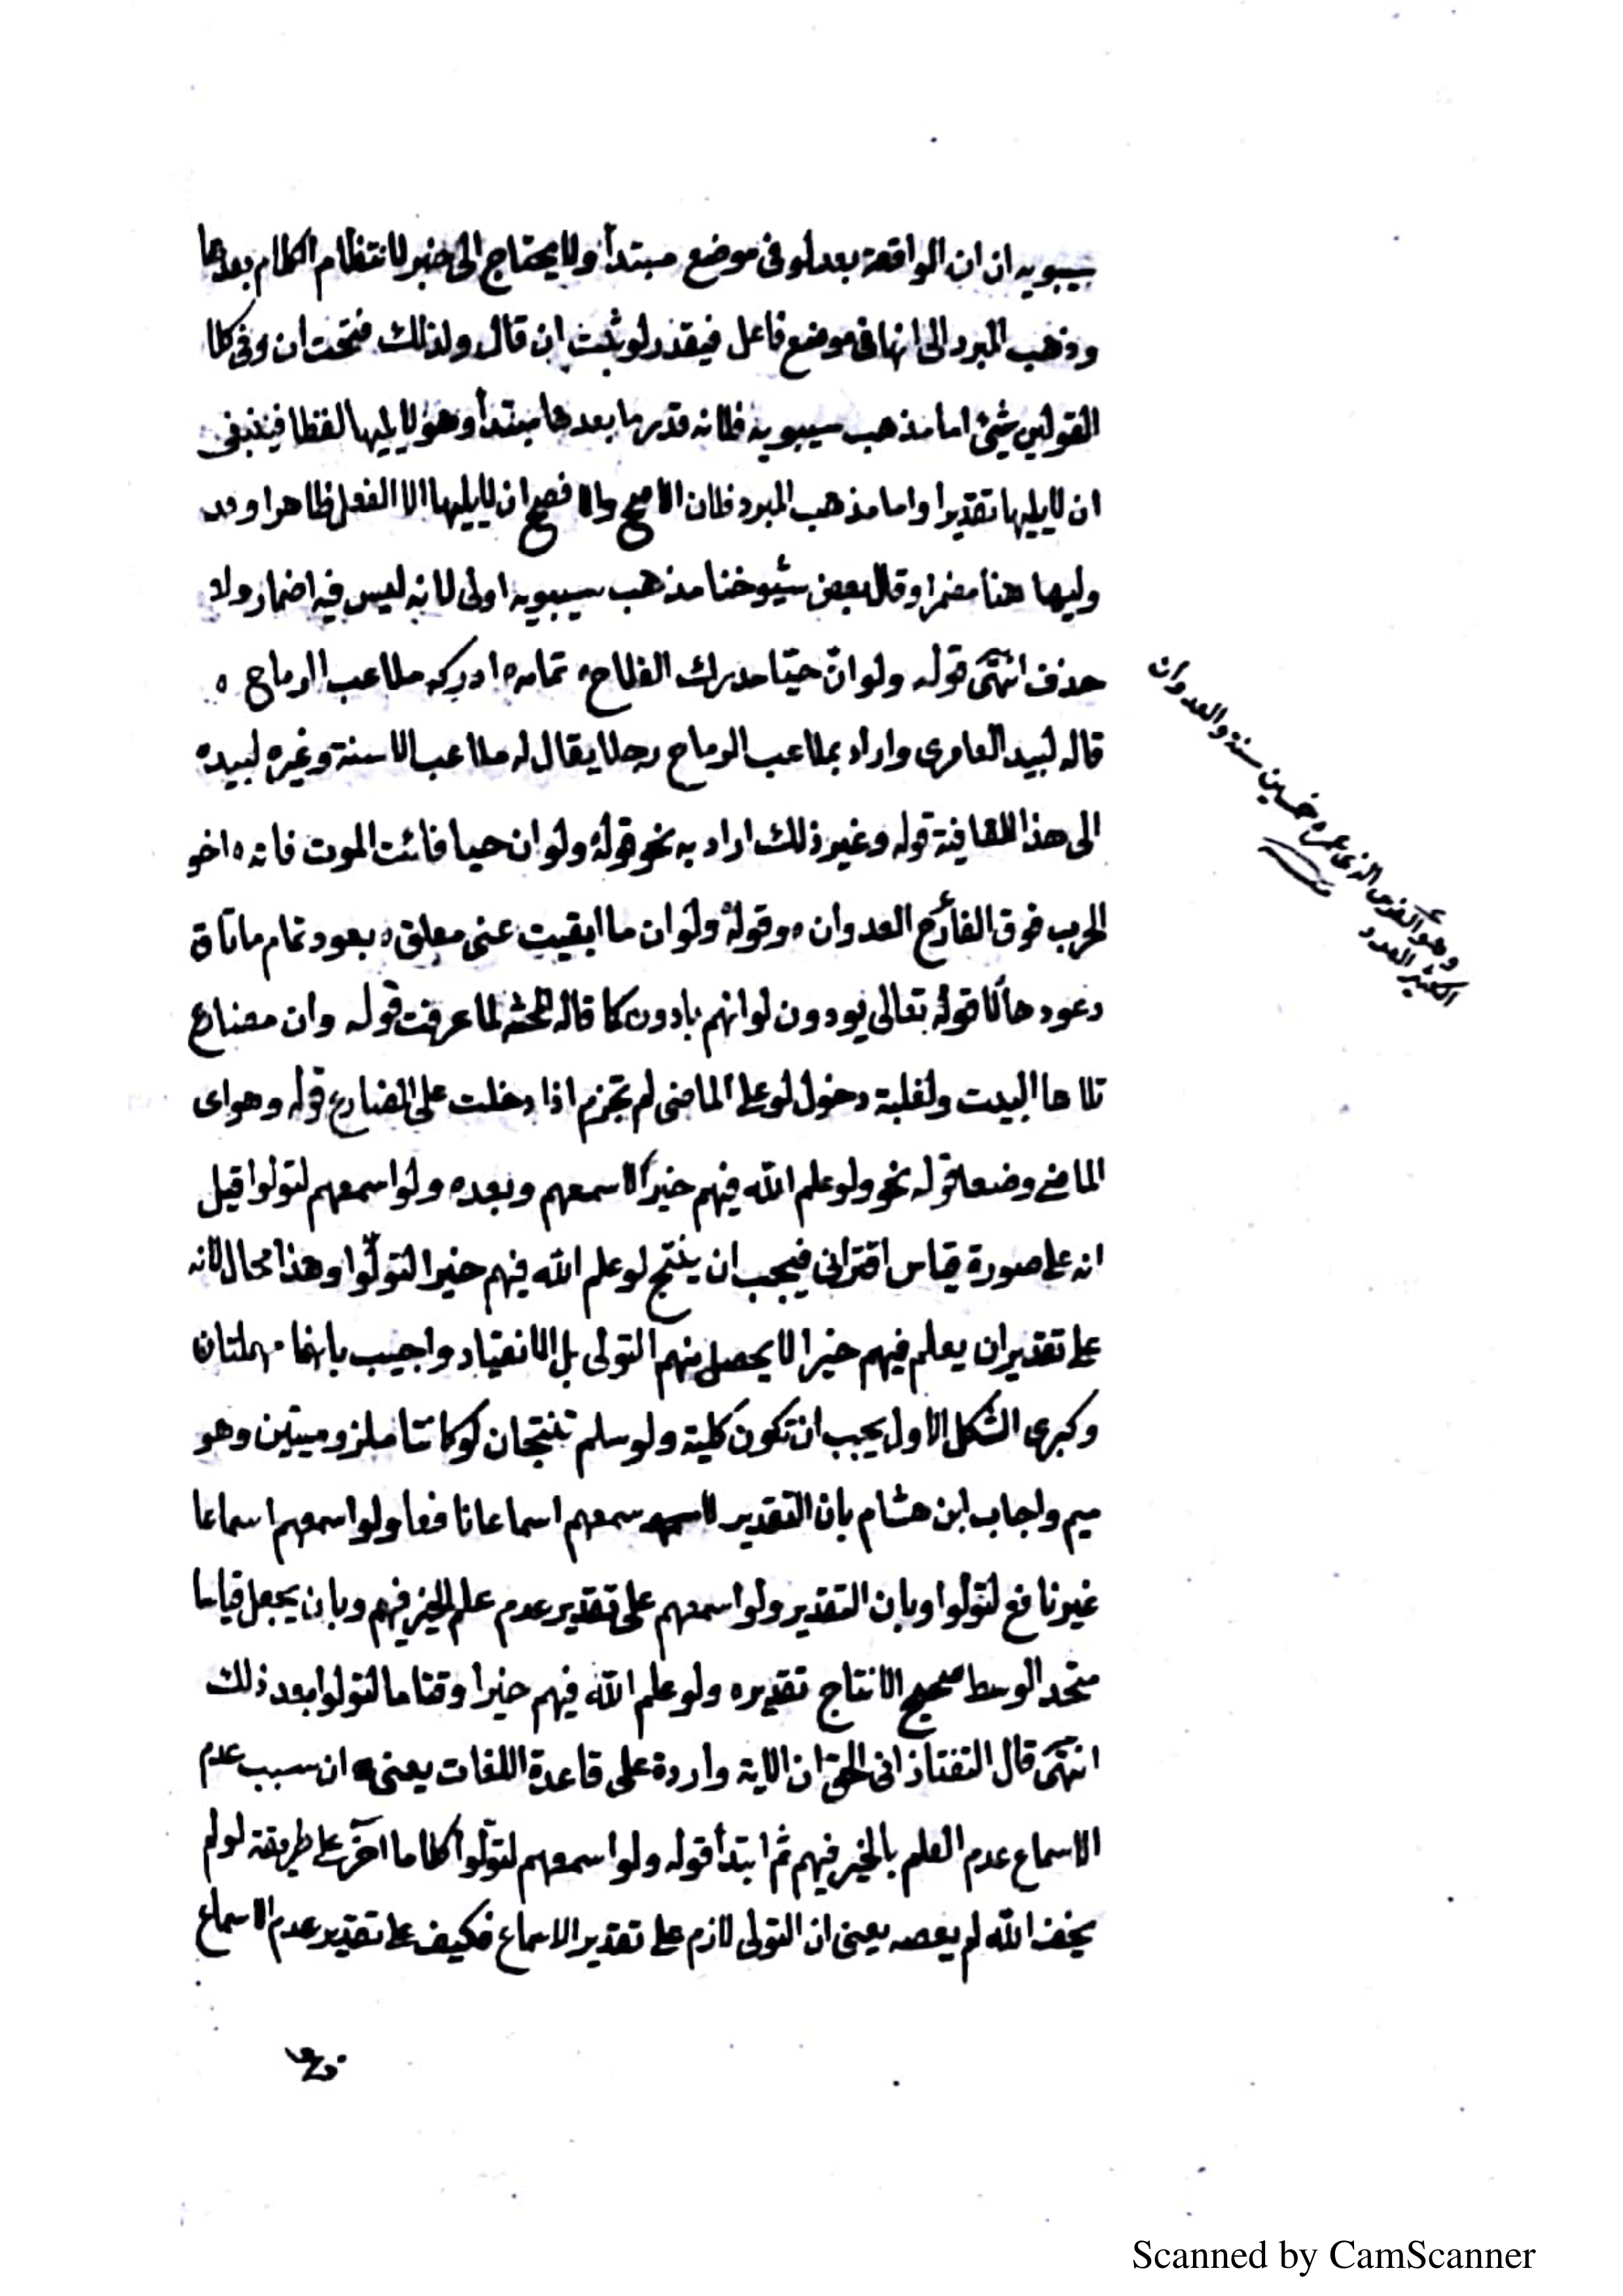 سيبويه ان ان الواقعة بعد لو في موضع مبتدأ ولا يحتاج الى خبر لانتظام الكلام بعدها
وذهب المبرد الى انها في موضع فاعل فيقدر لو ثبت ان قال ولذلك فتحت ان وفي كلا
القولين شيئ اما مذهب سيبويه فلانه قدر ما بعدها مبتدأ وهو لا يليها لفظا فينبغي
ان لا يليها تقديرا واما مذهب المبرد فلان الاصح والافصح ان لا يليها الا الفعل ظاهرا وقد
وليها هنا مضمرا وقال بعض شيوخنا مذهب سيبويه اولى لانه ليس فيه اضمار ولا
حذف انتهى قوله ولو انّ حيّا مدرك الفلاح، تمامه ادركه ملاعب الرماح ه
قاله لبيد العامري واراد بملاعب الرماح رجلا يقال له ملاعب الاسنة وغيره لبيده
الى هذا للقافية قوله وغير ذلك اراد به نحو قوله ولو ان حيا فائت الموت فاته ه اخو
الحرب فوق القارح العدوان ه وقوله ولو ان ما ابقيت عني معلق ه بعود تمام ما تاق
دعود حالا قوله تعالى يودون لو انهم بادون كما قاله المحشه لما عرفت قوله وان مضارع
تلاها البيت ولغلبة دخول لو على الماضي لم تجزم اذا دخلت على المضارع قوله وهو اى
الماضى وضعا قوله نحو ولو علم الله فيهم خيرا لاسمعهم وبعده ولو اسمعهم لتولوا قيل
انه على صورة قياس اقتراني فيجب ان ينتج لو علم الله فيهم خيرا لتولّوا وهذا محال لانه
على تقدير ان يعلم فيهم خيرا لا يحصل منهم التولى بل الانقياد واجيب بانهما مهملتان
وكبرى الشكل الاول يجب ان تكون كلية ولو سلم تنتجان لو كانتا ملزوميتين وهو
ميم واجاب ابن هشام بان التقدير لاسمعهم اسماعا نافعا ولو اسمعهم اسماعا
غير نافع لتولوا وبان التقدير ولو اسمعهم على تقدير عدم علم الخير فيهم وبان يجعل قياسا
متحد الوسط صحيح الانتاج تقديره ولو علم الله فيهم خيرا وقتا ما لتولوا بعد ذلك
انتهى قال التفتازاني الحق ان الاية واردة على قاعدة اللغات يعنى ان سبب عدم
الاسماع عدم العلم بالخير فيهم ثم ابتدأ قوله ولو اسمعهم لتولّوا كلاما آخر على طريقة لو لم
يخف الله لم يعصه يعنى ان التولى لازم على تقدير الاسماع فكيف على تقدير عدم الاسماع
وهو الفرس الذى عمره خمسين سنة والعدوان
الكثير العدو
Scanned by CamScanner